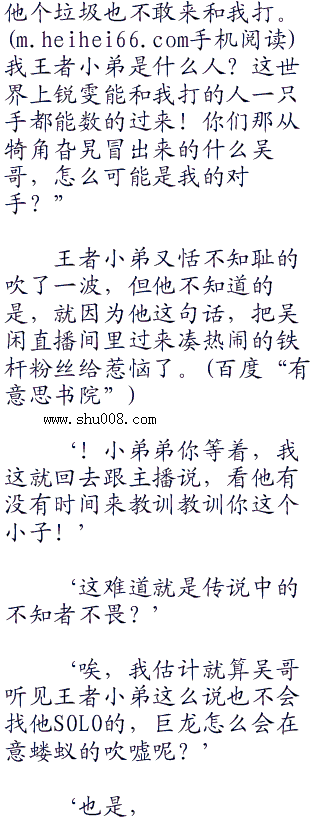 他个垃圾也不敢来和我打。
(m.heihei66.com手机阅读)
我王者小弟是什么人？这世
界上锐雯能和我打的人一只
手都能数的过来！你们那从
犄角旮旯冒出来的什么吴
哥，怎么可能是我的对
手？”
王者小弟又恬不知耻的
吹了一波，但他不知道的
是，就因为他这句话，把吴
闲直播间里过来凑热闹的铁
杆粉丝给惹恼了。(百度“有
意思书院”)
www.shu008.com
‘！小弟弟你等着，我
这就回去跟主播说，看他有
没有时间来教训教训你这个
小子！’
‘这难道就是传说中的
不知者不畏？’
‘唉，我估计就算吴哥
听见王者小弟这么说也不会
找他SOLO的，巨龙怎么会在
意蝼蚁的吹嘘呢？’
‘也是，